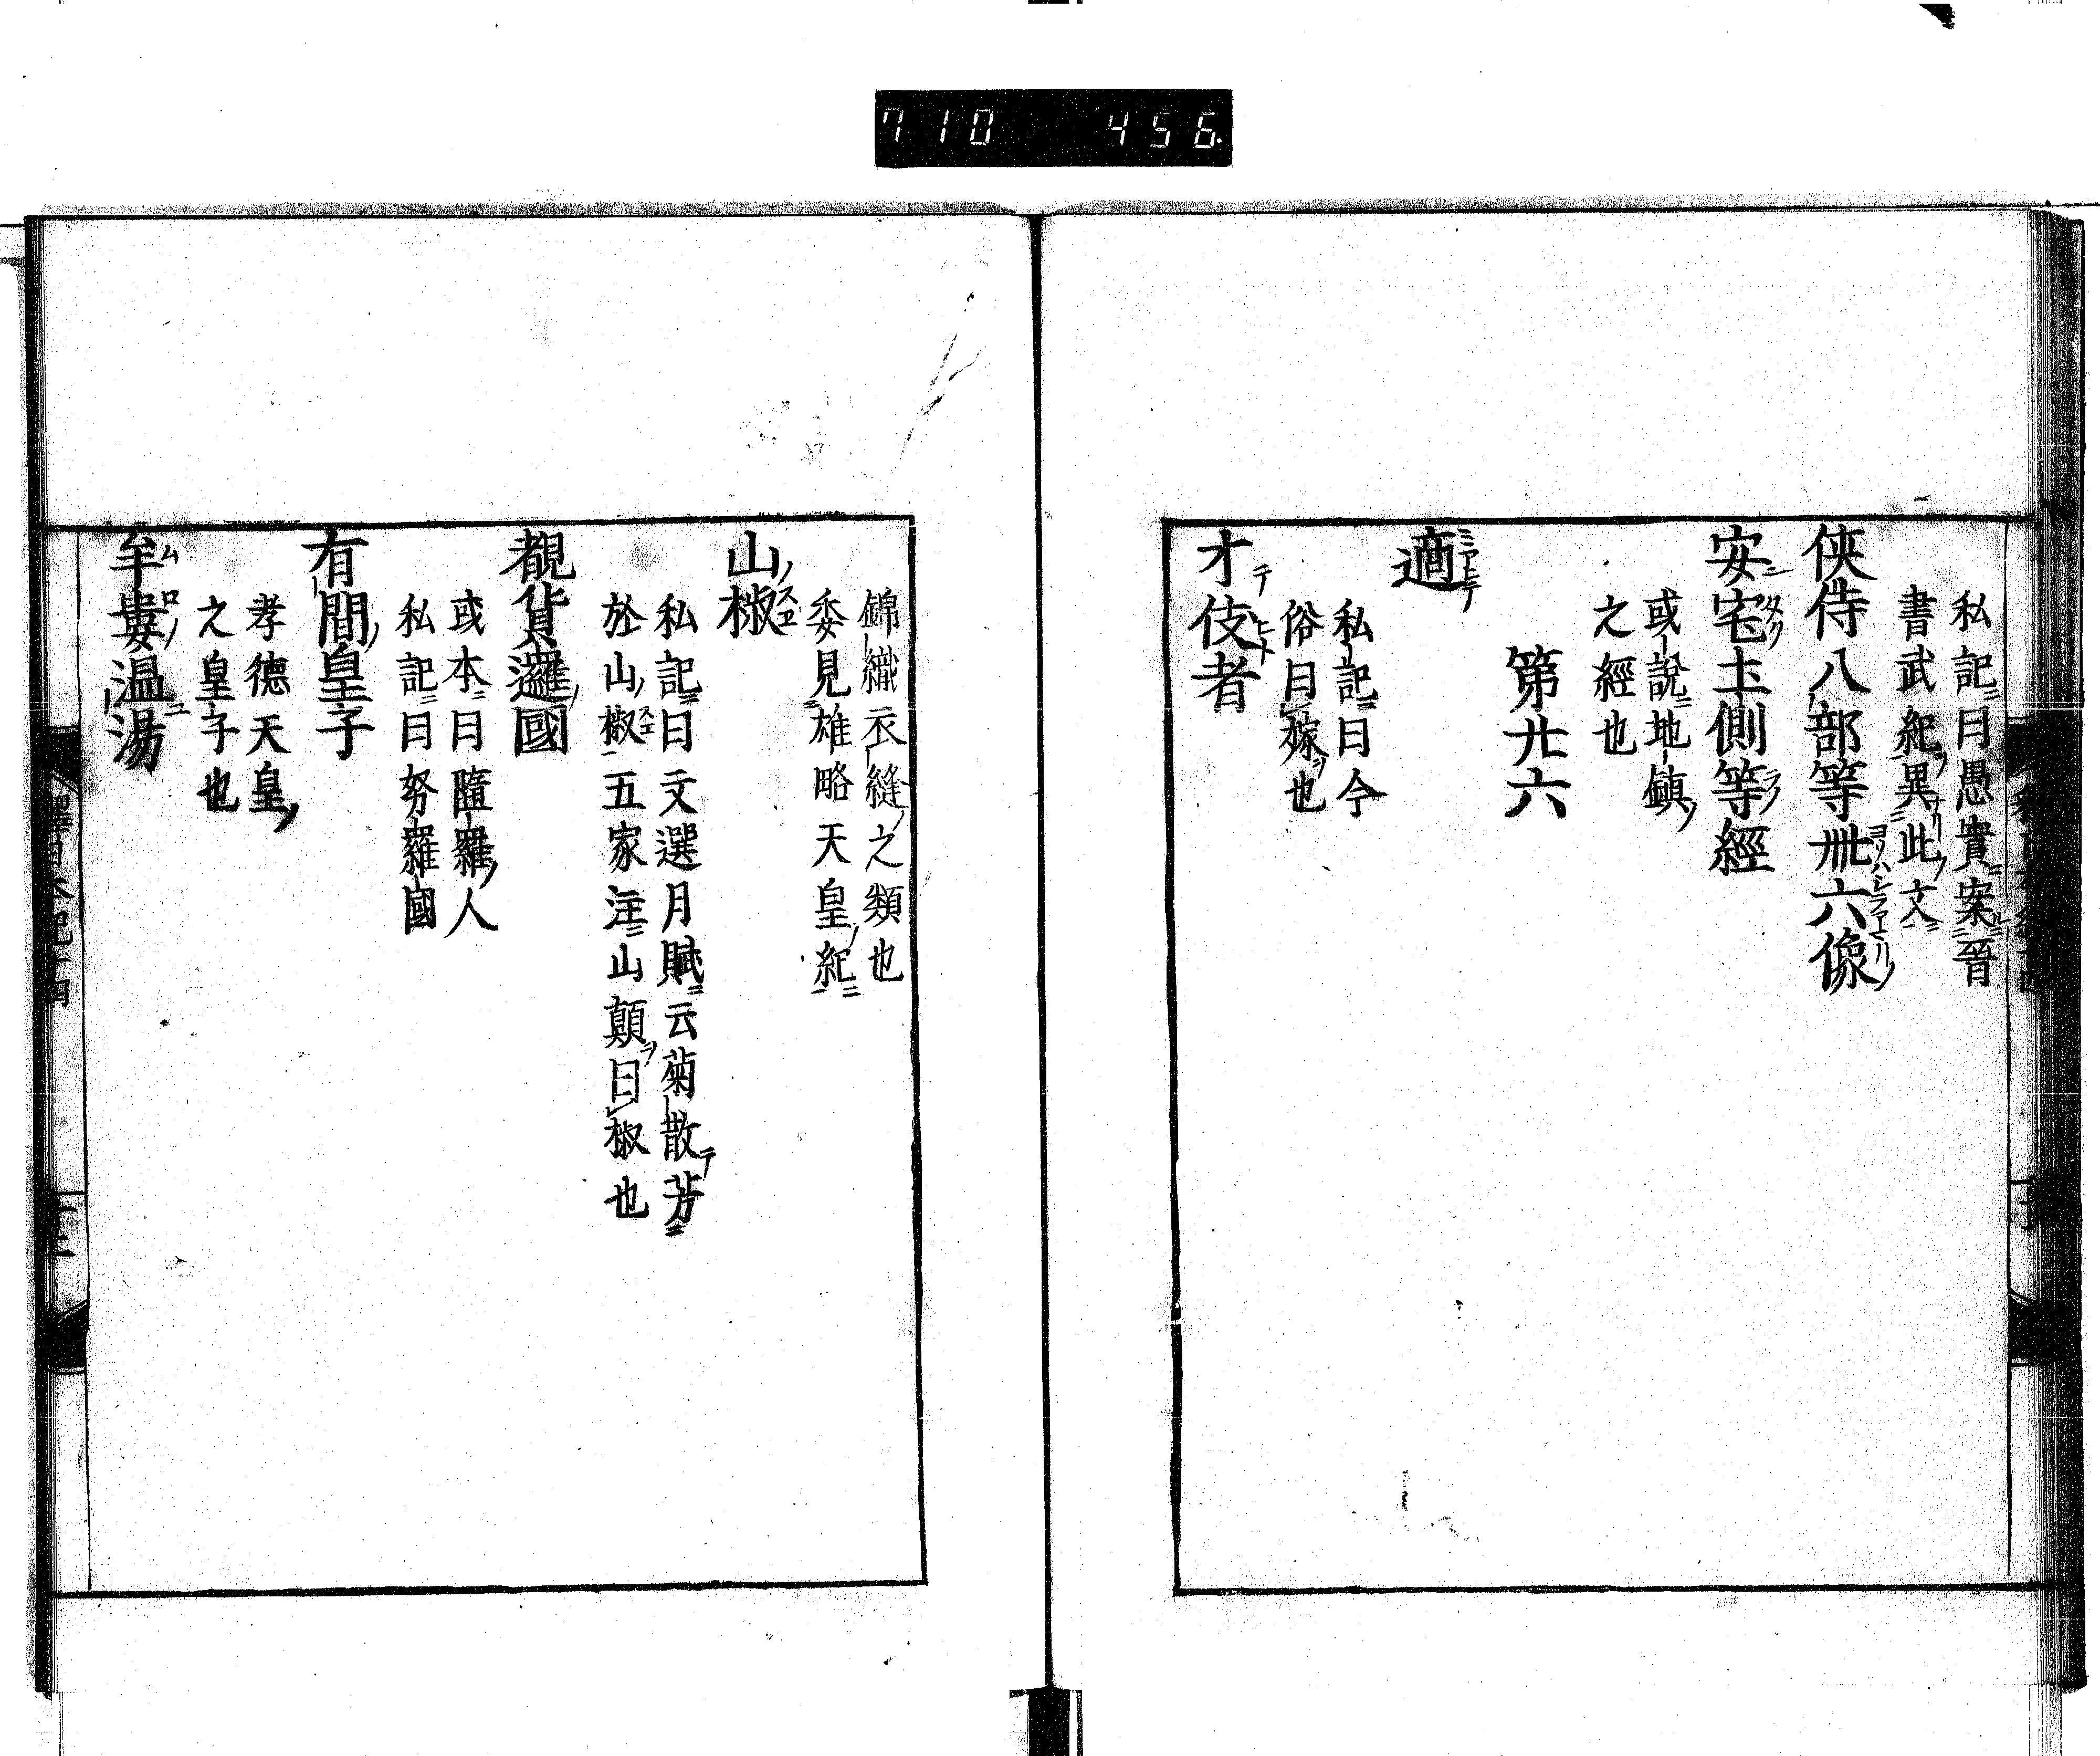 710 456
私記曰愚實案晉
書武紀異此文
侠侍八部等卅六像
安宅土側等經
或説地鎮
之經也
第廿六
適
私記曰今
俗曰嫁也
才伎者
錦織衣縫之類也
委見雄略天皇紀
山椒
私記曰文選月賦云菊散芳
於山椒五家注山顛曰椒也
覩貨邏國
或本曰隨羅人
私記曰努羅國
有間皇子
孝德天皇
之皇子也
牟婁温湯